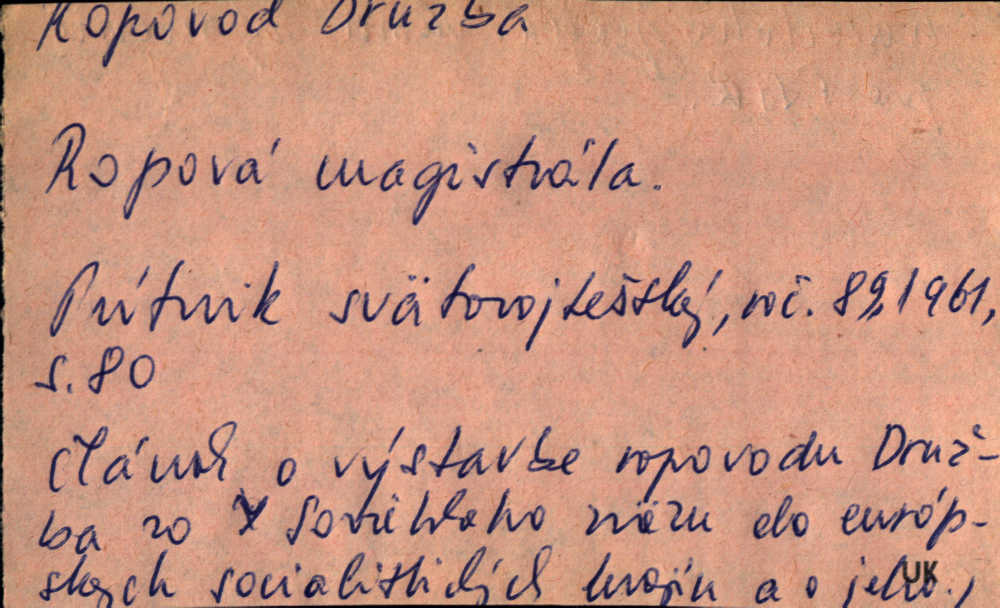 Ropovod Družba
Ropová magistrála.
Pútnik svätovojtešský, roč. 89, 1961,
s. 80
Článok o výstavbe ropovodu Druž-
ba zo Sovietskeho zväzu do európ-
skych socialistických krajín a o jeho
UK